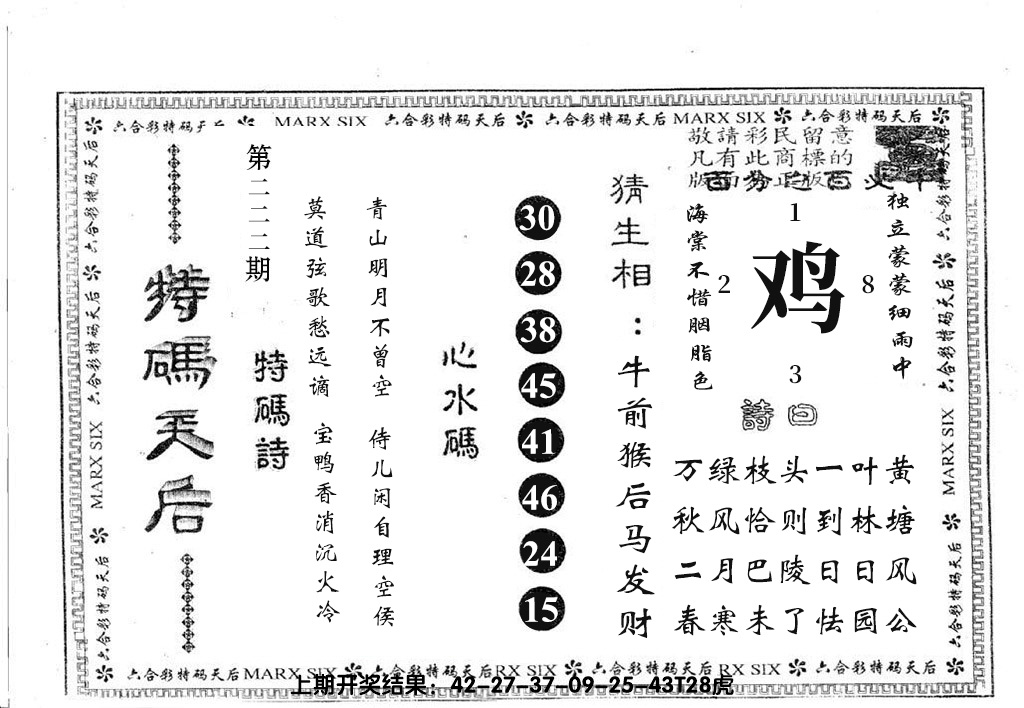 六合彩特码天后 MARX SIX 六合彩特码天后 六合彩特码天后 MARX SIX 六合彩特码天后
敬請彩民留意
凡有此商標的
版面為正版
独立蒙蒙细雨中
1
鸡
2
8
3
海棠不惜胭脂色
詩曰
黄塘风公
叶林日园
一到日怯
头则陵了
枝恰巴未
绿风月寒
万秋二春
猜生相：牛前猴后马发财
30
28
38
45
41
46
24
15
心水碼
青山明月不曾空 侍儿闲自理空侯
莫道弦歌愁远谪 宝鸭香消沉火冷
特碼詩
第二二二期
特碼天后
六合彩特码天后 六合彩特码天后 MARX SIX 六合彩特码天后
六合彩特码天后 六合彩特码天后 MARX SIX 六合彩特码天后
六合彩特码天后 MARX SIX 六合彩特码天后 RX SIX 六合彩特码天后 RX SIX 六合彩特码天后
上期开奖结果：42-27-37-09-25-43T28虎